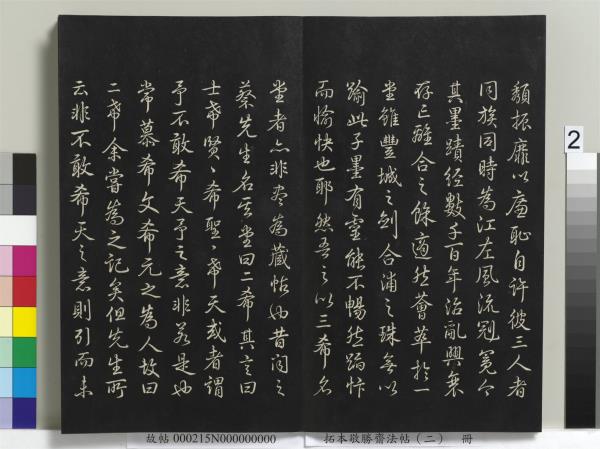 頹振靡以廉恥自許彼三人者
同族同時為江左風流冠冕今
其墨蹟經數千百年治亂興衰
存亡離合之餘適然薈萃於一
堂雖豐城之劍合浦之珠無以
踰此子墨有靈能不暢然蹈忭
而愉快也耶然吾之以三希名
堂者亦非盡為藏帖也昔聞之
蔡先生名其堂曰二希其言曰
士希賢〻希聖〻希天或者謂
予不敢希天予之意非若是也
常慕希文希元之為人故曰
二希余嘗為之記矣但先生所
云非不敢希天之意則引而未
2
故帖 000215N000000000 拓本敬勝齋法帖（二） 冊